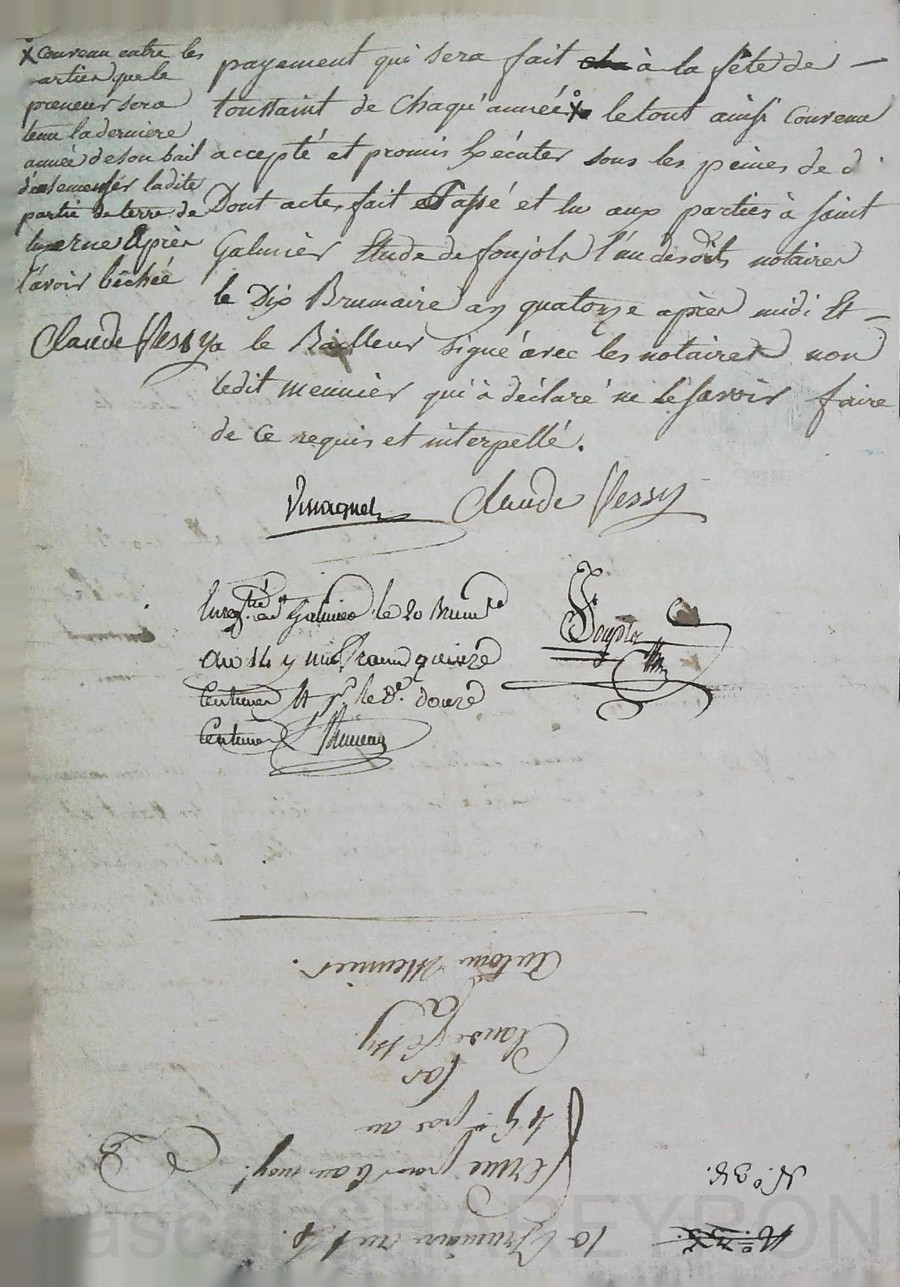 x convenu entre les
parties que le
preneur sera
tenu la derniere
année de son bail
d'ensemenser ladite
partie de terre de
luzerne après
l'avoir bêchée
Claude Vessy
payement qui sera fait à la fête de
toussaint de chaqu'année x le tout ainsi convenu
accepté et promis Exécuter sous les peines de d
Dont acte, fait et Passé et lu aux parties à saint
Galmier Etude de foujols l'un desdits notaires
le Dix Brumaire an quatorze après midi Et
a le Bailleur signé avec les notaires non
ledit meunier qui à déclaré ne le savoir faire
de ce requis et interpellé.
Claude Vessy
Galmier le 20 Brum.re
an 14 quinze
Centimes le d.e douze
Centimes
Antoine Meunier.
a
Claude Vessy
Par
par an
ferme pour 6 ans moy.t
N.o 38.
10 Brumaire an 14.
Pascal CHAREYRON